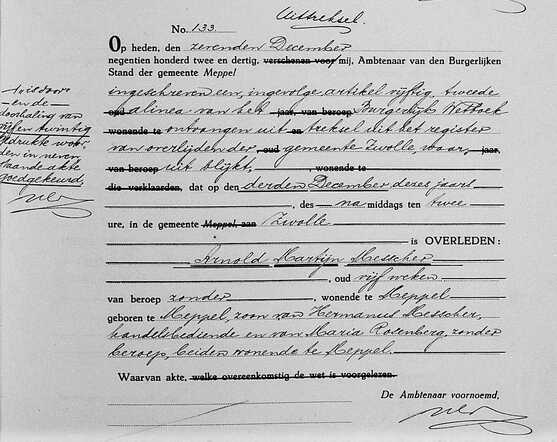 Uittreksel.
No. 133.
Op heden, den zevenden December
negentien honderd twee en dertig, verschenen voor mij, Ambtenaar van den Burgerlijken
Stand der gemeente Meppel
ingeschreven een, ingevolge artikel vijftig, tweede
oud alinea van het jaar, van beroep Burgerlijk Wetboek
wonende te ontvangen uit en treksel uit het register
van overlijden der, oud gemeente Zwolle, waar, jaar,
van beroep uit blijkt, wonende te
die verklaarden, dat op den derden December dezes jaars
, des namiddags ten twee
ure, in de gemeente Meppel, aan Zwolle
is OVERLEDEN:
Arnold Martijn Messcher
, oud vijf weken
van beroep zonder, wonende te Meppel
geboren te Meppel, zoon van Hermanus Messcher,
handelsbediende en van Maria Rosenberg, zonder
beroep, beiden wonende te Meppel.
Waarvan akte, welke overeenkomstig de wet is voorgelezen.
De Ambtenaar voornoemd,
en de
doorhaling van
vijf en twintig
gedrukte woor-
den in neven-
staande akte
goedgekeurd,